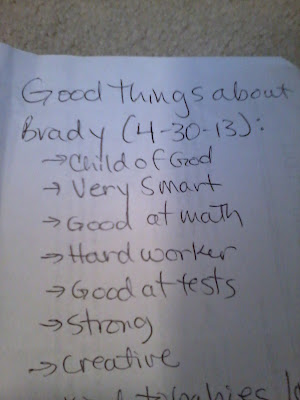 Good things about
Brady (4-30-13):
→Child of God
→Very Smart
→Good at math
→Hard worker
→Good at tests
→Strong
→Creative
to babies